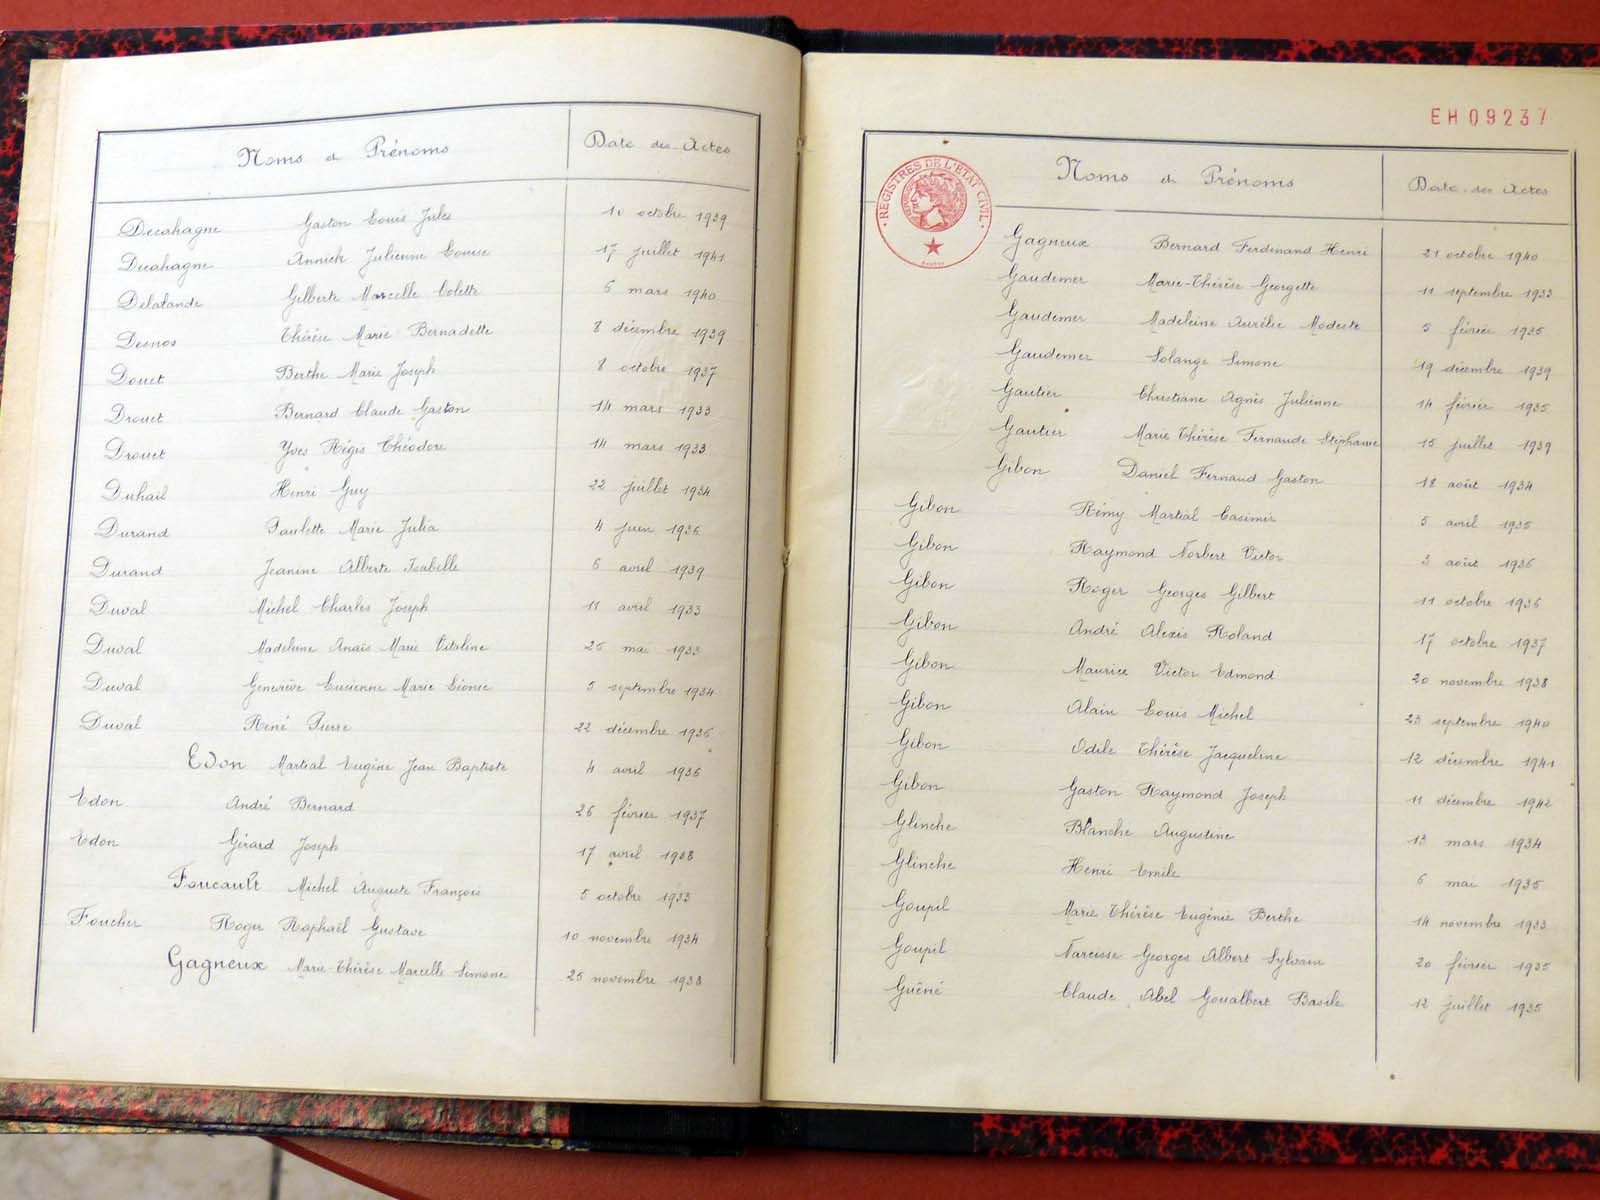 Noms et Prénoms Date des Actes
Decahagne Gaston Louis Jules 10 octobre 1939
Decahagne Annick Julienne Louise 17 juillet 1941
Delalande Gilberte Marcelle Colette 6 mars 1940
Desnos Thérèse Marie Bernadette 8 décembre 1939
Douet Berthe Marie Joseph 8 octobre 1937
Drouet Bernard Claude Gaston 14 mars 1933
Drouet Yves Régis Théodore 14 mars 1933
Duhail Henri Guy 22 juillet 1934
Durand Paulette Marie Julia 4 juin 1936
Durand Jeanine Alberte Isabelle 6 avril 1939
Duval Michel Charles Joseph 11 avril 1933
Duval Madeleine Anaïs Marie Vitaline 25 mai 1933
Duval Geneviève Lucienne Marie Léonie 5 septembre 1934
Duval René Pierre 22 décembre 1936
Edon Martial Eugène Jean Baptiste 4 avril 1936
Edon André Bernard 26 février 1937
Edon Gérard Joseph 17 avril 1938
Foucault Michel Auguste François 5 octobre 1933
Foucher Roger Raphaël Gustave 10 novembre 1934
Gagneux Marie-Thérèse Marcelle Simone 25 novembre 1938
EH09237
REGISTRES DE L'ETAT CIVIL
Noms et Prénoms Date des Actes
Gagneux Bernard Ferdinand Henri 21 octobre 1940
Gaudemer Marie-Thérèse Georgette 11 septembre 1933
Gaudemer Madeleine Aurélie Modeste 5 février 1935
Gaudemer Solange Simone 19 décembre 1939
Gautier Christiane Agnès Julienne 14 février 1935
Gautier Marie Thérèse Fernande Stéphanie 15 juillet 1939
Gibon Daniel Fernand Gaston 18 août 1934
Gibon Rémy Martial Casimir 5 avril 1935
Gibon Raymond Norbert Victor 3 août 1936
Gibon Roger Georges Gilbert 11 octobre 1936
Gibon André Alexis Roland 17 octobre 1937
Gibon Maurice Victor Edmond 20 novembre 1938
Gibon Alain Louis Michel 23 septembre 1940
Gibon Odile Thérèse Jacqueline 12 décembre 1941
Gibon Gaston Raymond Joseph 11 décembre 1942
Glinche Blanche Augustine 13 mars 1934
Glinche Henri Emile 6 mai 1935
Goupil Marie Thérèse Eugénie Berthe 14 novembre 1933
Goupil Narcisse Georges Albert Sylvain 20 février 1935
Guéné Claude Abel Goualbert Basile 12 juillet 1935